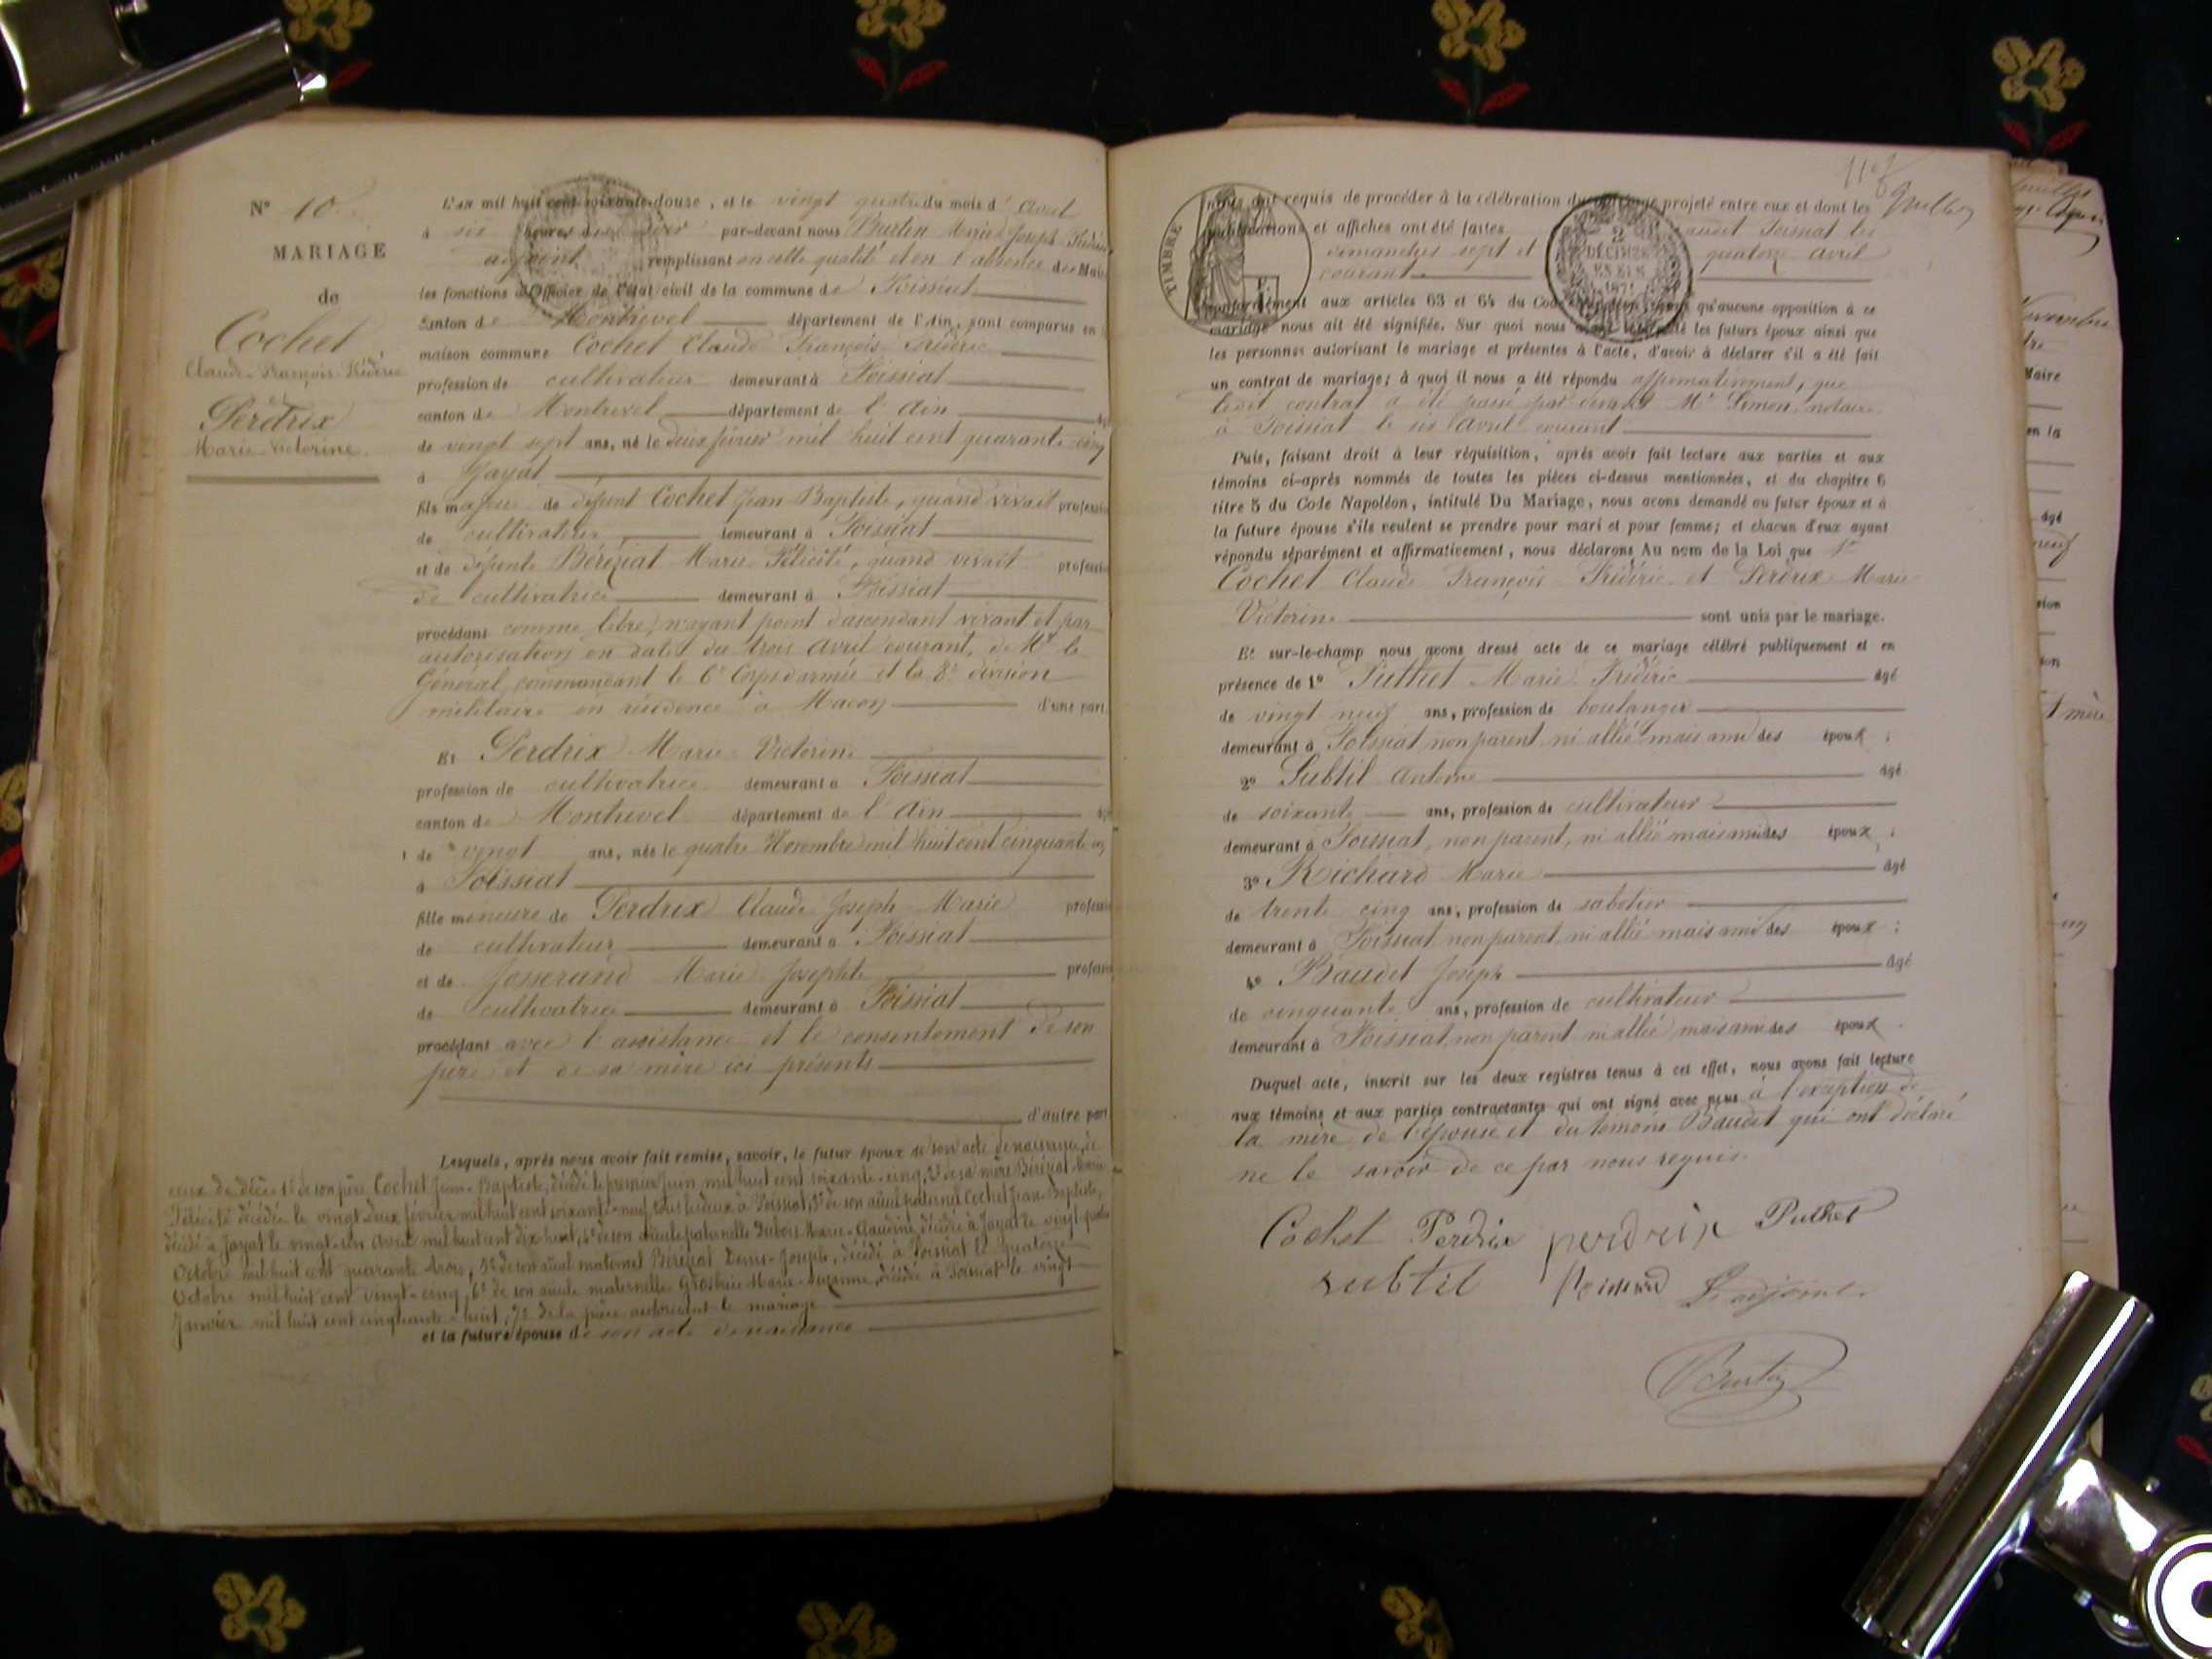 N° 10
MARIAGE
de
Cochet
Claude-François-Frédéric
et
Perdrix
Marie-Victorine.
L'an mil huit cent soixante-douze, et le vingt quatre du mois d'avril
à six heures du soir par-devant nous Burtin Marie Joseph Frédéric
adjoint remplissant en cette qualité et en l'absence de Maire
les fonctions d'Officier de l'état civil de la commune de Foissiat
canton de Montrevel département de l'Ain, sont comparus en
maison commune Cochet Claude François Frédéric
profession de cultivateur demeurant à Foissiat
canton de Montrevel département de l'Ain
de vingt sept ans, né le deux février mil huit cent quarante cinq
à Jayat
fils majeur de défunt Cochet Jean Baptiste, quand vivait profession
de cultivateur demeurant à Foissiat
et de défunte Béréziat Marie Félicité, quand vivait profession
de cultivatrice demeurant à Foissiat
procédant comme libre, n'ayant point d'ascendant vivant et par
autorisation en date du trois avril courant, de Mr le
Général commandant le 6e Corps d'armée et la 8e division
militaire en résidence à Macon d'une part.
Et Perdrix Marie Victorine
profession de cultivatrice demeurant à Foissiat
canton de Montrevel département de l'Ain
de vingt ans, née le quatre Novembre mil huit cent cinquante un
à Foissiat
fille mineure de Perdrix Claude Joseph Marie profession
de cultivateur demeurant à Foissiat
et de Josserand Marie Josephte profession
de cultivatrice demeurant à Foissiat
procédant avec l'assistance et le consentement de son
père et de sa mère ici présents
d'autre part
Lesquels, après nous avoir fait remise, savoir, le futur époux de son acte de naissance, de
ceux de décès 1° de son père Cochet Jean-Baptiste, décédé le premier Juin mil huit cent soixante-cinq, 2° de sa mère Béréziat Marie
Félicité décédée le vingt-deux février mil huit cent soixante-neuf, tous les deux à Foissiat, 3° de son aïeul paternel Cochet Jean-Baptiste,
décédé à Jayat le vingt-un avril mil huit cent dix huit, 4° de son aïeule paternelle Dubois Marie-Claudine, décédée à Jayat le vingt
Octobre mil huit cent quarante trois, 5° de son aïeul maternel Béréziat Denis-Joseph, décédé à Foissiat le quatorze
Octobre mil huit cent vingt-cinq, 6° de son aïeule maternelle Marie-Suzanne, décédée à Foissiat le vingt
Janvier mil huit cent cinquante-huit, 7° de la pièce autorisant le mariage
et la future épouse de son acte de naissance
TIMBRE
2
DÉCIMES
EN SUS
1871
nous ont requis de procéder à la célébration du mariage projeté entre eux et dont les
publications et affiches ont été faites audit Foissiat les
dimanches sept et quatorze avril
courant
conformément aux articles 63 et 64 du Code qu'aucune opposition à ce
mariage nous ait été signifiée. Sur quoi nous avons interpellé les futurs époux ainsi que
les personnes autorisant le mariage et présentes à l'acte, d'avoir à déclarer s'il a été fait
un contrat de mariage; à quoi il nous a été répondu affirmativement, que
ledit contrat a été passé par devant Me Simon, notaire
à Foissiat le six avril courant
Puis, faisant droit à leur réquisition, après avoir fait lecture aux parties et aux
témoins ci-après nommés de toutes les pièces ci-dessus mentionnées, et du chapitre 6
titre 5 du Code Napoléon, intitulé Du Mariage, nous avons demandé au futur époux et à
la future épouse s'ils veulent se prendre pour mari et pour femme; et chacun d'eux ayant
répondu séparément et affirmativement, nous déclarons Au nom de la Loi que
Cochet Claude François Frédéric et Perdrix Marie
Victorine sont unis par le mariage.
Et sur-le-champ nous avons dressé acte de ce mariage célébré publiquement et en
présence de 1° Puthet Marie Frédéric âgé
de vingt neuf ans, profession de boulanger
demeurant à Foissiat non parent ni allié mais ami des époux ;
2° Subtil Antoine âgé
de soixante ans, profession de cultivateur
demeurant à Foissiat, non parent, ni allié mais ami des époux ;
3° Richard Marie âgé
de trente cinq ans, profession de sabotier
demeurant à Foissiat non parent ni allié mais ami des époux ;
4° Baudet Joseph âgé
de cinquante ans, profession de cultivateur
demeurant à Foissiat, non parent ni allié mais ami des époux
Duquel acte, inscrit sur les deux registres tenus à cet effet, nous avons fait lecture
aux témoins et aux parties contractantes qui ont signé avec nous à l'exception de
la mère de l'épouse et du témoin Baudet qui ont déclaré
ne le savoir de ce par nous requis.
Cochet Perdrix perdrix Puthet
subtil Richard L'adjoint
Burtin